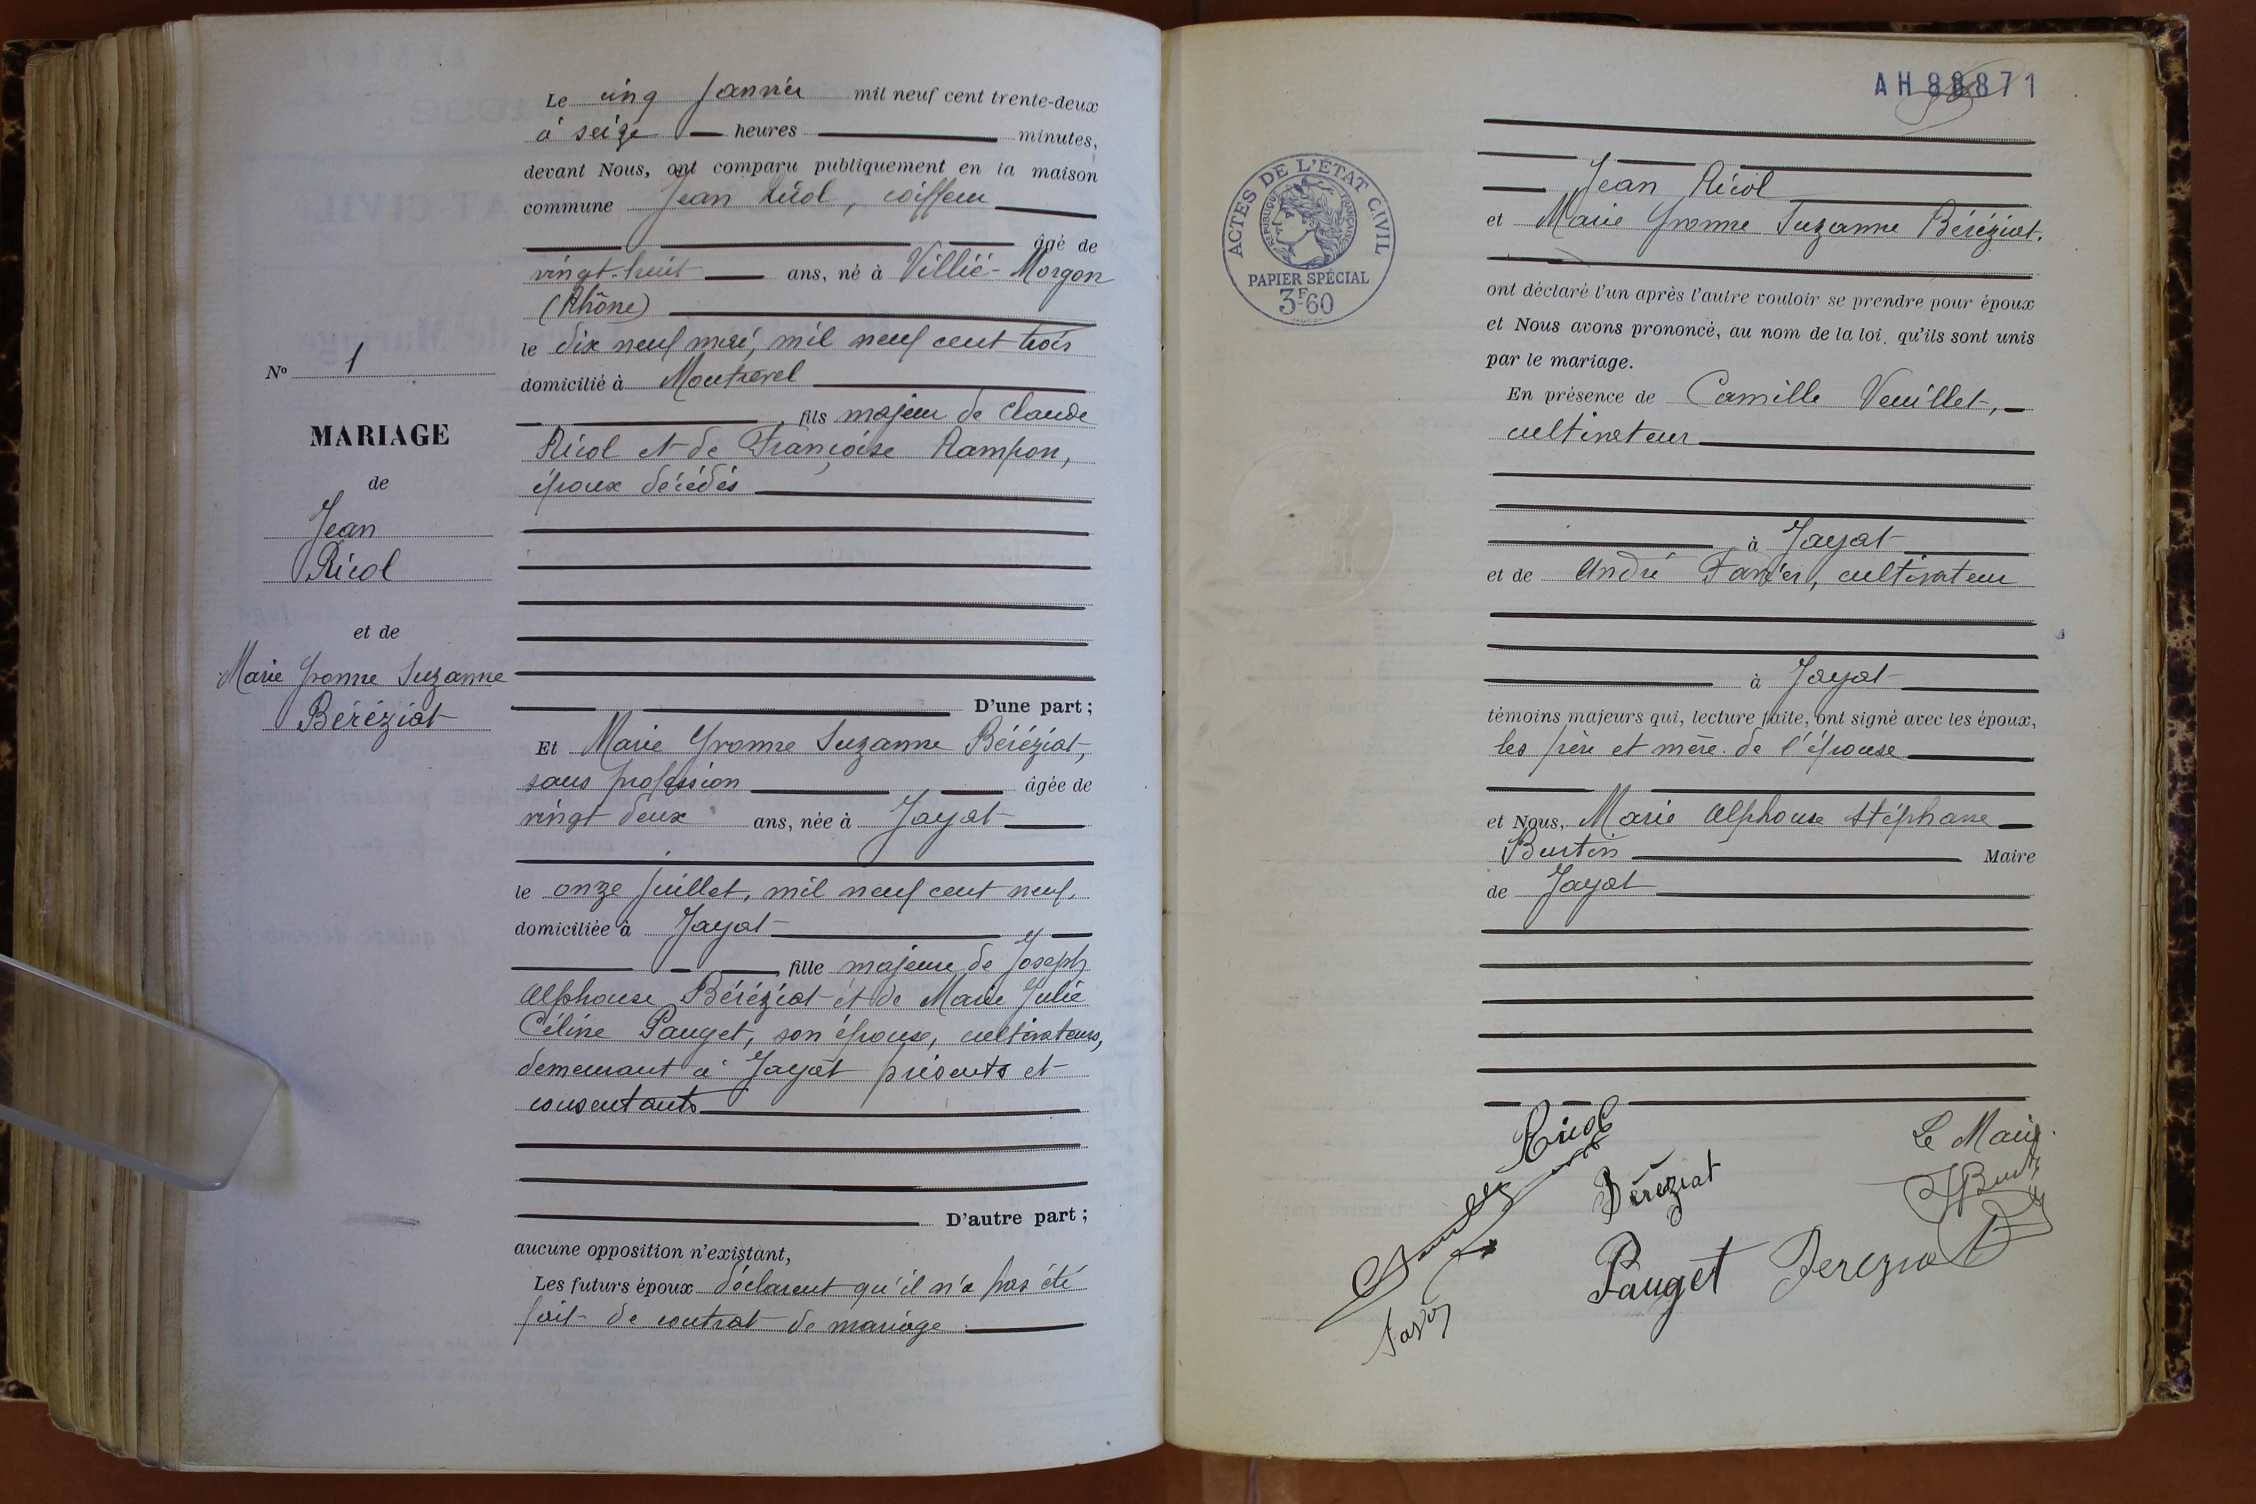 Le cinq Janvier mil neuf cent trente-deux
à seize heures minutes,
devant Nous, ont comparu publiquement en la maison
commune Jean Ricol, coiffeur
âgé de
vingt-huit ans, né à Villié-Morgon
(Rhône)
le dix neuf mai, mil neuf cent trois
domicilié à Montrevel
fils majeur de Claude
Ricol et de Françoise Rampon,
époux décédés
D'une part ;
Nº 1
MARIAGE
de
Jean
Ricol
et de
Marie Yvonne Suzanne
Béréziat
Et Marie Yvonne Suzanne Béréziat,
sans profession âgée de
vingt deux ans, née à Jayat
le onze Juillet, mil neuf cent neuf,
domiciliée à Jayat
fille majeure de Joseph
Alphonse Béréziat et de Marie Julie
Céline Pauget, son épouse, cultivateurs,
demeurant à Jayat présents et
consentants
D'autre part ;
aucune opposition n'existant,
Les futurs époux déclarent qu'il n'a pas été
fait de contrat de mariage
AH 88871
ACTES DE L'ÉTAT CIVIL
RÉPUBLIQUE FRANÇAISE
PAPIER SPÉCIAL
3F60
Jean Ricol
et Marie Yvonne Suzanne Béréziat.
ont déclaré l'un après l'autre vouloir se prendre pour époux
et Nous avons prononcé, au nom de la loi, qu'ils sont unis
par le mariage.
En présence de Camille Veuillet,
cultivateur
à Jayat
et de André Favier, cultivateur
à Jayat
témoins majeurs qui, lecture faite, ont signé avec les époux,
les père et mère de l'épouse
et Nous, Marie Alphonse Stéphane
Burtin Maire
de Jayat
Ricol
Béréziat
Le Maire
Pauget Berezia